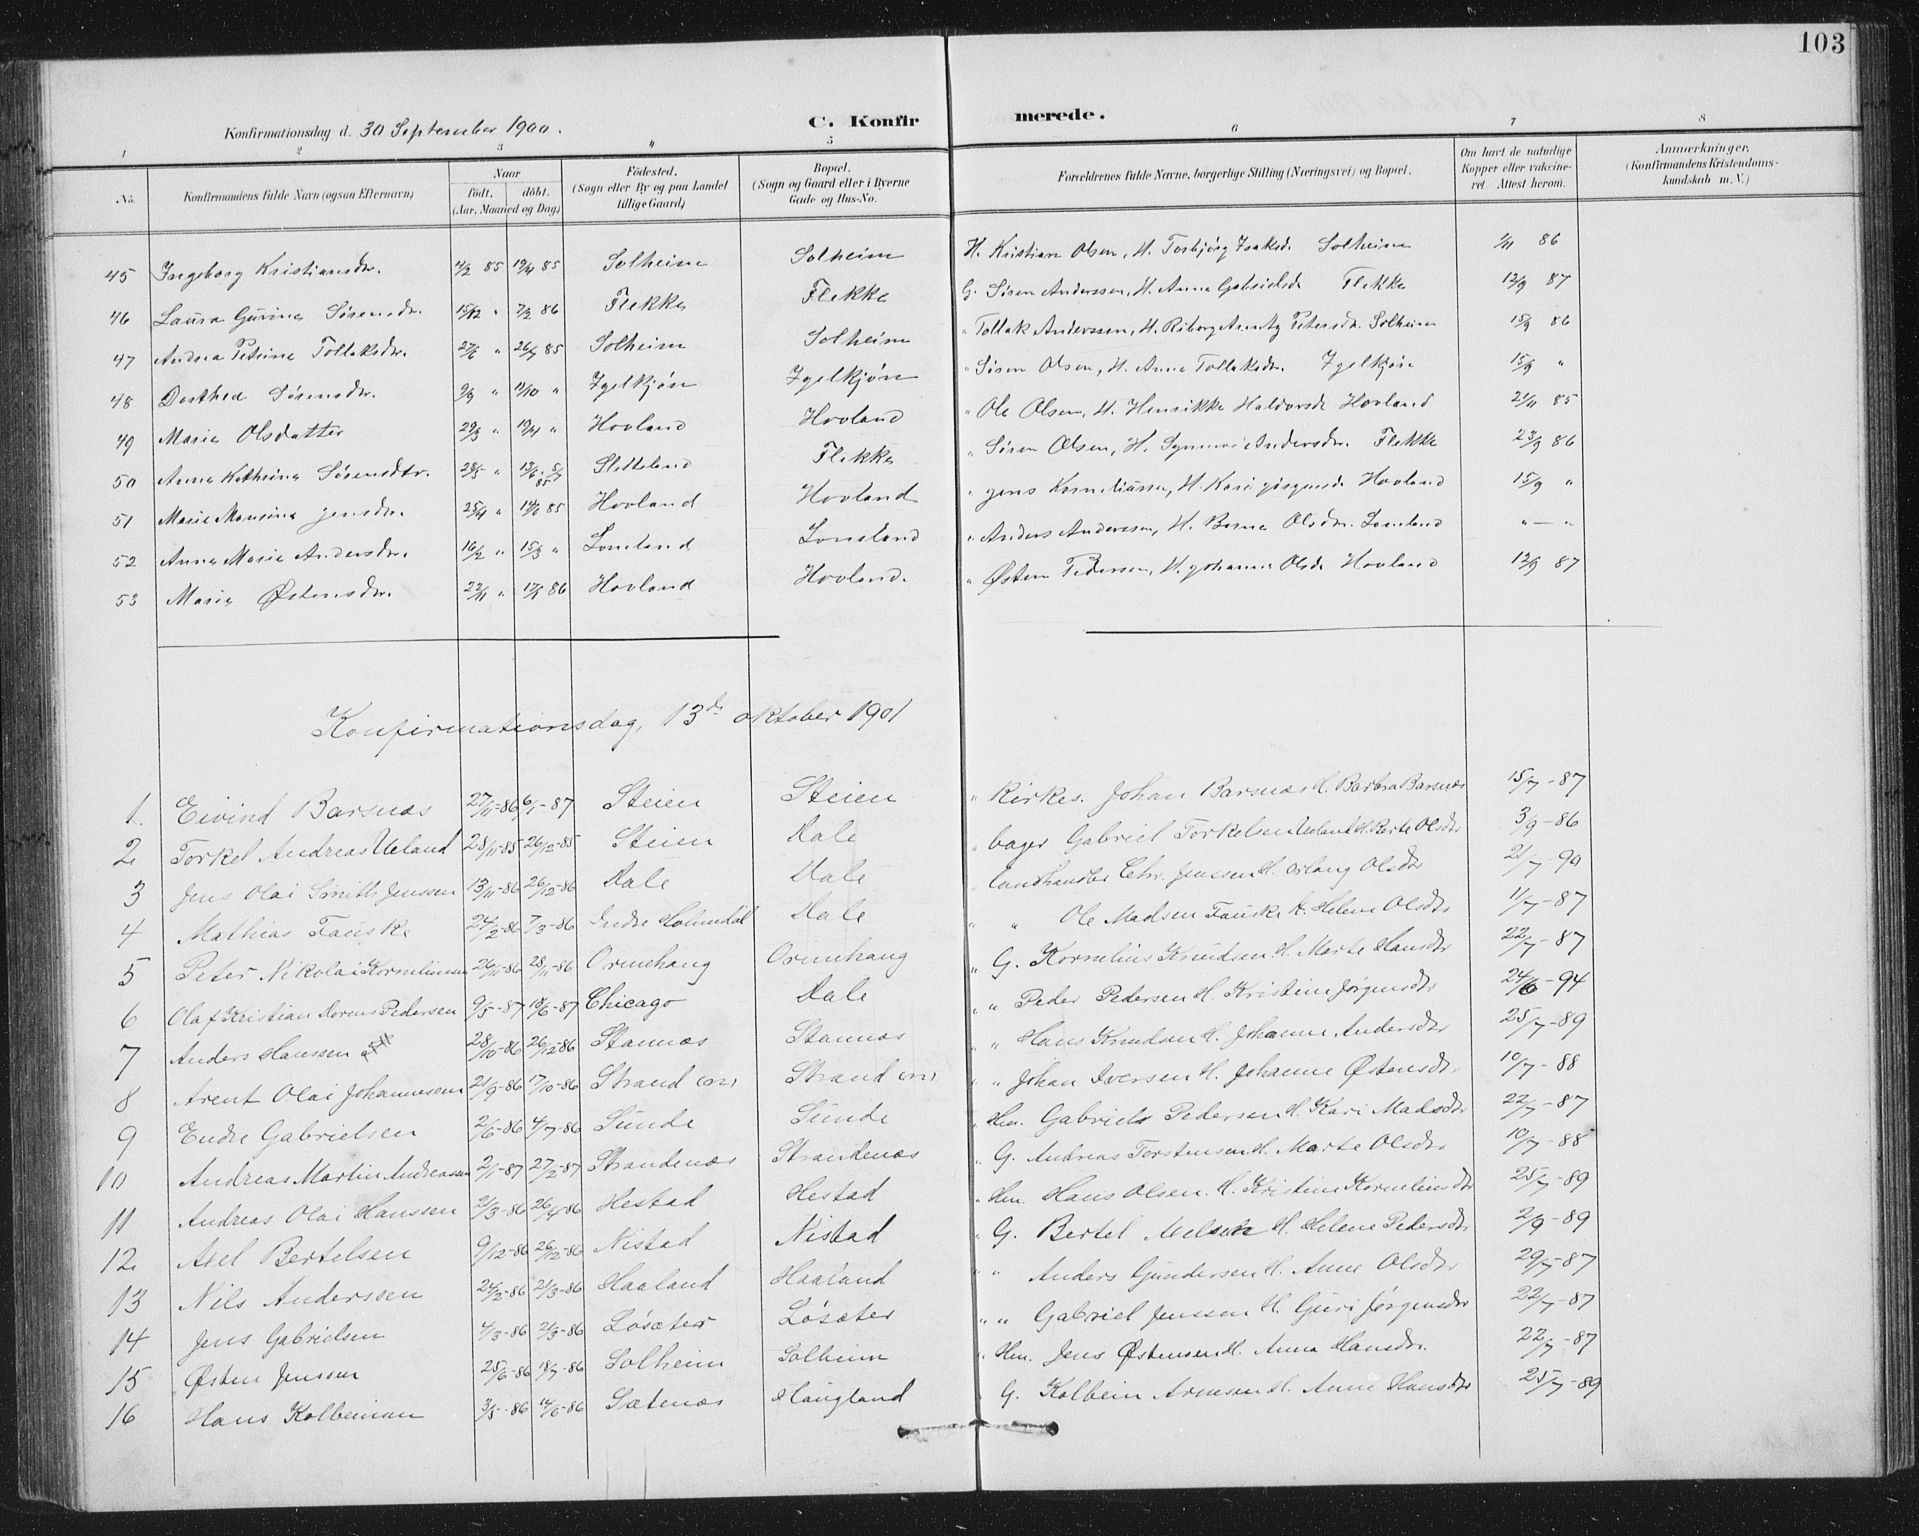 103
Konfirmationsdag d. 30 September 1900.
C. Konfirmerede.
1 2 3 4 5 6 7 8
No. Konfirmandens fulde Navn (ogsaa Efternavn) Naar födt. döbt. (Aar, Maaned og Dag) Födested. (Sogn eller By og paa Landet tillige Gaard) Bopæl. (Sogn og Gaard eller i Byerne Gade og Hus-No. Forældrenes fulde Navne, borgerlige Stilling (Næringsvei) og Bopæl. Om havt de naturlige Kopper eller vakcineret Attest herom. Anmærkninger. (Konfirmandens Kristendomskundskab m. V.)
45 Ingeborg Kristiansdr. 4/2 85 19/4 85 Solheim Solheim H. Kristian Olsen, H. Torbjørg Isaksd. Solheim 1/11 86
46 Laura Gurine Sørensdr. 15/12 " 7/2 86 Flekke Flekke G. Søren Anderssen, H. Anna Gabrielsd. Flekke 12/9 87
47 Andrea Petrine Tollaksdr. 27/6 " 26/7 85 Solheim Solheim " Tollak Anderssen, H. Petersdr. Solheim 15/9 86
48 Dorthea Sørensdr. 9/9 " 11/10 " Igelkjøn Igelkjøn " Søren Olsen, H. Anna Tollaksdr. Igelkjøn 15/9 "
49 Marie Olsdatter 29/3 " 19/4 " Hovland Hovland " Ole Olsen, H. Henrikke Haldorsd. Hovland 21/11 85
50 Anna Kathrina Sørensdtr. 28/5 " Sletteland Flekke " Søren Olsen, H. Synneve Andersdr. Flekke 23/9 86
51 Marie Monsine Jensdr. 25/4 " 14/6 85 Hovland Hovland " Jens Korneliussen, H. Kari Jørgensd. Hovland 15/9 "
52 Anna Marie Andersdr. 16/2 " 15/3 " Loneland Loneland " Anders Anderssen, H. Olsdr. Loneland " — "
53 Marie Østensdr. 22/11 " 17/1 86 Hovland Hovland. " Østen Pedersen, H. Johanne Olsd. Hovland 12/9 87
Konfirmationsdag, 13de oktober 1901
1. Eivind Barsnæs 27/11-86 6/1-87 Steien Steien " Kirkes. Johan Barsnæs H. Barbra Barsnæs 15/7-87
2 Torkel Andreas Ueland 28/11-85 26/12-85 Steien Dale " bager Gabriel Torkelsen Ueland H. Berte Olsdtr 3/9-86
3 Jens Olai Smith Jenssen 13/11-86 26/12-86 Dale Dale " Landhandler Chr. Jenssen H. Olsdtr 21/7-90
4 Mathias Fauske 24/2-86 7/3-86 Indre Holmedal Dale " " Ole Madsen Fauske H. Helene Olsdtr 11/7-87
5 Peter Nikolai Korneliussen 26/11-86 28/11-86 Ormehaug Ormehaug " G. Kornelius Knudsen H. Marte Hansdtr 22/7-87
6 Olaf Kristian Pedersen 9/5-87 18/6-87 Chicago Dale " " Peder Pedersen H. Kristine Jørgensdtr 24/6-94
7 Anders Hanssen 28/10-86 26/12-86 Stannæs Stannæs " " Hans Knudsen H. Johanne Andersdtr 25/7-89
8 Arent Olai Johannessen 21/9-86 17/10-86 Strand Strand " " Johan Iversen H. Johanne Østensdtr 10/7-88
9 Endre Gabrielsen 2/6-86 4/7-86 Sunde Sunde " Hm. Gabriel Pedersen H. Kari Madsdtr 22/7-87
10 Andreas Martin Andreassen 2/1-87 27/2-87 Strandenæs Strandenæs " G. Andreas Torstensen H. Marte Olsdtr 10/7-88
11 Andreas Olai Hanssen 21/3-86 26/4-86 Hestad Hestad " Hm. Hans Olsen H. Kristine Korneliusdtr 25/7-89
12 Axel Bertelsen 9/12-86 26/12-86 Nistad Nistad " G. Bertel Nilsen H. Helene Pedersdtr 2/9-89
13 Nils Anderssen 24/2-86 21/3-86 Haaland Haaland " " Anders Gundersen H. Anne Olsdtr 29/7-87
14 Jens Gabrielsen 4/3-86 21/3-86 Løsæter Løsæter " " Gabriel Jenssen H. Guri Jørgensdtr 22/7-87
15 Østen Jenssen 25/6-86 18/7-86 Solheim Solheim " Hm. Jens Østensen H. Anna Hansdr. 22/7-87
16 Hans Kolbeinsen 3/5-86 14/6-86 Sætenæs Haugland " G. Kolbein Arnesen H. Anne Hansdtr 25/7-89